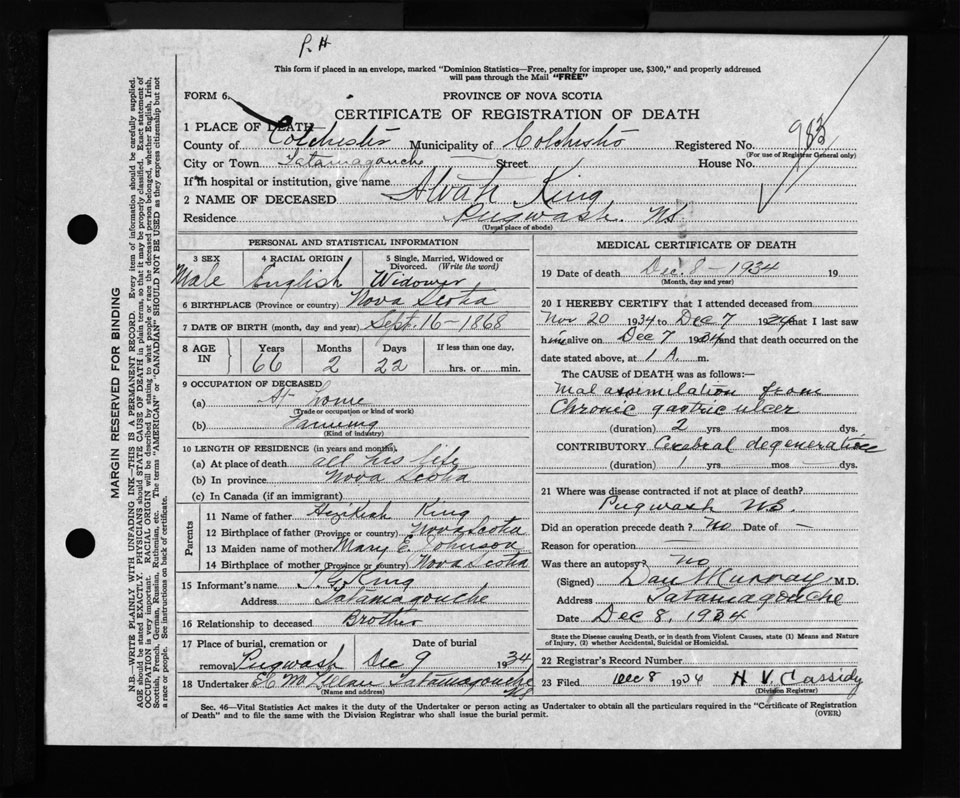 P. H
This form if placed in an envelope, marked "Dominion Statistics—Free, penalty for improper use, $300," and properly addressed
will pass through the Mail "FREE"
FORM 6.
PROVINCE OF NOVA SCOTIA
CERTIFICATE OF REGISTRATION OF DEATH
1 PLACE OF DEATH
County of Colchester Municipality of Colchester Registered No. 983
(For use of Registrar General only)
City or Town Tatamagouche Street House No.
If in hospital or institution, give name
2 NAME OF DECEASED Alvah King
Residence Pugwash. NS
(Usual place of abode)
MARGIN RESERVED FOR BINDING
N.B.—WRITE PLAINLY WITH UNFADING INK—THIS IS A PERMANENT RECORD. Every item of information should be carefully supplied.
AGE should be stated EXACTLY. PHYSICIANS should STATE CAUSE OF DEATH in plain terms, so that it may be properly classified. Exact statement of
OCCUPATION is very important. RACIAL ORIGIN will be described by stating to what people or race the deceased person belonged, whether English, Irish,
Scottish, French, German, Russian, Ruthenian, etc. The terms "AMERICAN" or "CANADIAN" SHOULD NOT BE USED as they express citizenship but not
a race or people. See instructions on back of certificate.
PERSONAL AND STATISTICAL INFORMATION
3 SEX
Male
4 RACIAL ORIGIN
English
5 Single, Married, Widowed or
Divorced. (Write the word)
Widower
6 BIRTHPLACE (Province or country) Nova Scotia
7 DATE OF BIRTH (month, day and year) Sept. 16-1868
8 AGE IN
Years Months Days If less than one day,
66 2 22 hrs. or min.
9 OCCUPATION OF DECEASED
(a) At home
(Trade or occupation or kind of work)
(b) Farming
(Kind of industry)
10 LENGTH OF RESIDENCE (in years and months)
(a) At place of death all his life
(b) In province Nova Scotia
(c) In Canada (if an immigrant)
Parents
11 Name of father King
12 Birthplace of father (Province or country) Nova Scotia
13 Maiden name of mother Mary E. Johnson
14 Birthplace of mother (Province or country) Nova Scotia
15 Informant's name King
Address Tatamagouche
16 Relationship to deceased Brother
17 Place of burial, cremation or Date of burial
removal Pugwash Dec 9 1934
18 Undertaker Tatamagouche
(Name and address) NS
MEDICAL CERTIFICATE OF DEATH
19 Date of death Dec. 8 - 1934 19
(Month, day and year)
20 I HEREBY CERTIFY that I attended deceased from
Nov 20 1934 to Dec 7 1934 that I last saw
him alive on Dec 7 1934 and that death occurred on the
date stated above, at 1 A. m.
The CAUSE OF DEATH was as follows:—
Mal assimilation from
Chronic gastric ulcer
(duration) 2 yrs. mos dys.
CONTRIBUTORY Cerebral degeneration
(duration) 1 yrs mos – dys.
21 Where was disease contracted if not at place of death?
Pugwash N.S.
Did an operation precede death? No Date of –
Reason for operation —
Was there an autopsy? no
(Signed) Dan Murray M.D.
Address Tatamagouche
Date Dec 8, 1934
State the Disease causing Death, or in death from Violent Causes, state (1) Means and Nature
of Injury, (2) whether Accidental, Suicidal or Homicidal.
22 Registrar's Record Number
23 Filed Dec 8 1934 H V. Cassidy
(Division Registrar)
Sec. 46—Vital Statistics Act makes it the duty of the Undertaker or person acting as Undertaker to obtain all the particulars required in the "Certificate of Registration
of Death" and to file the same with the Division Registrar who shall issue the burial permit. (OVER)